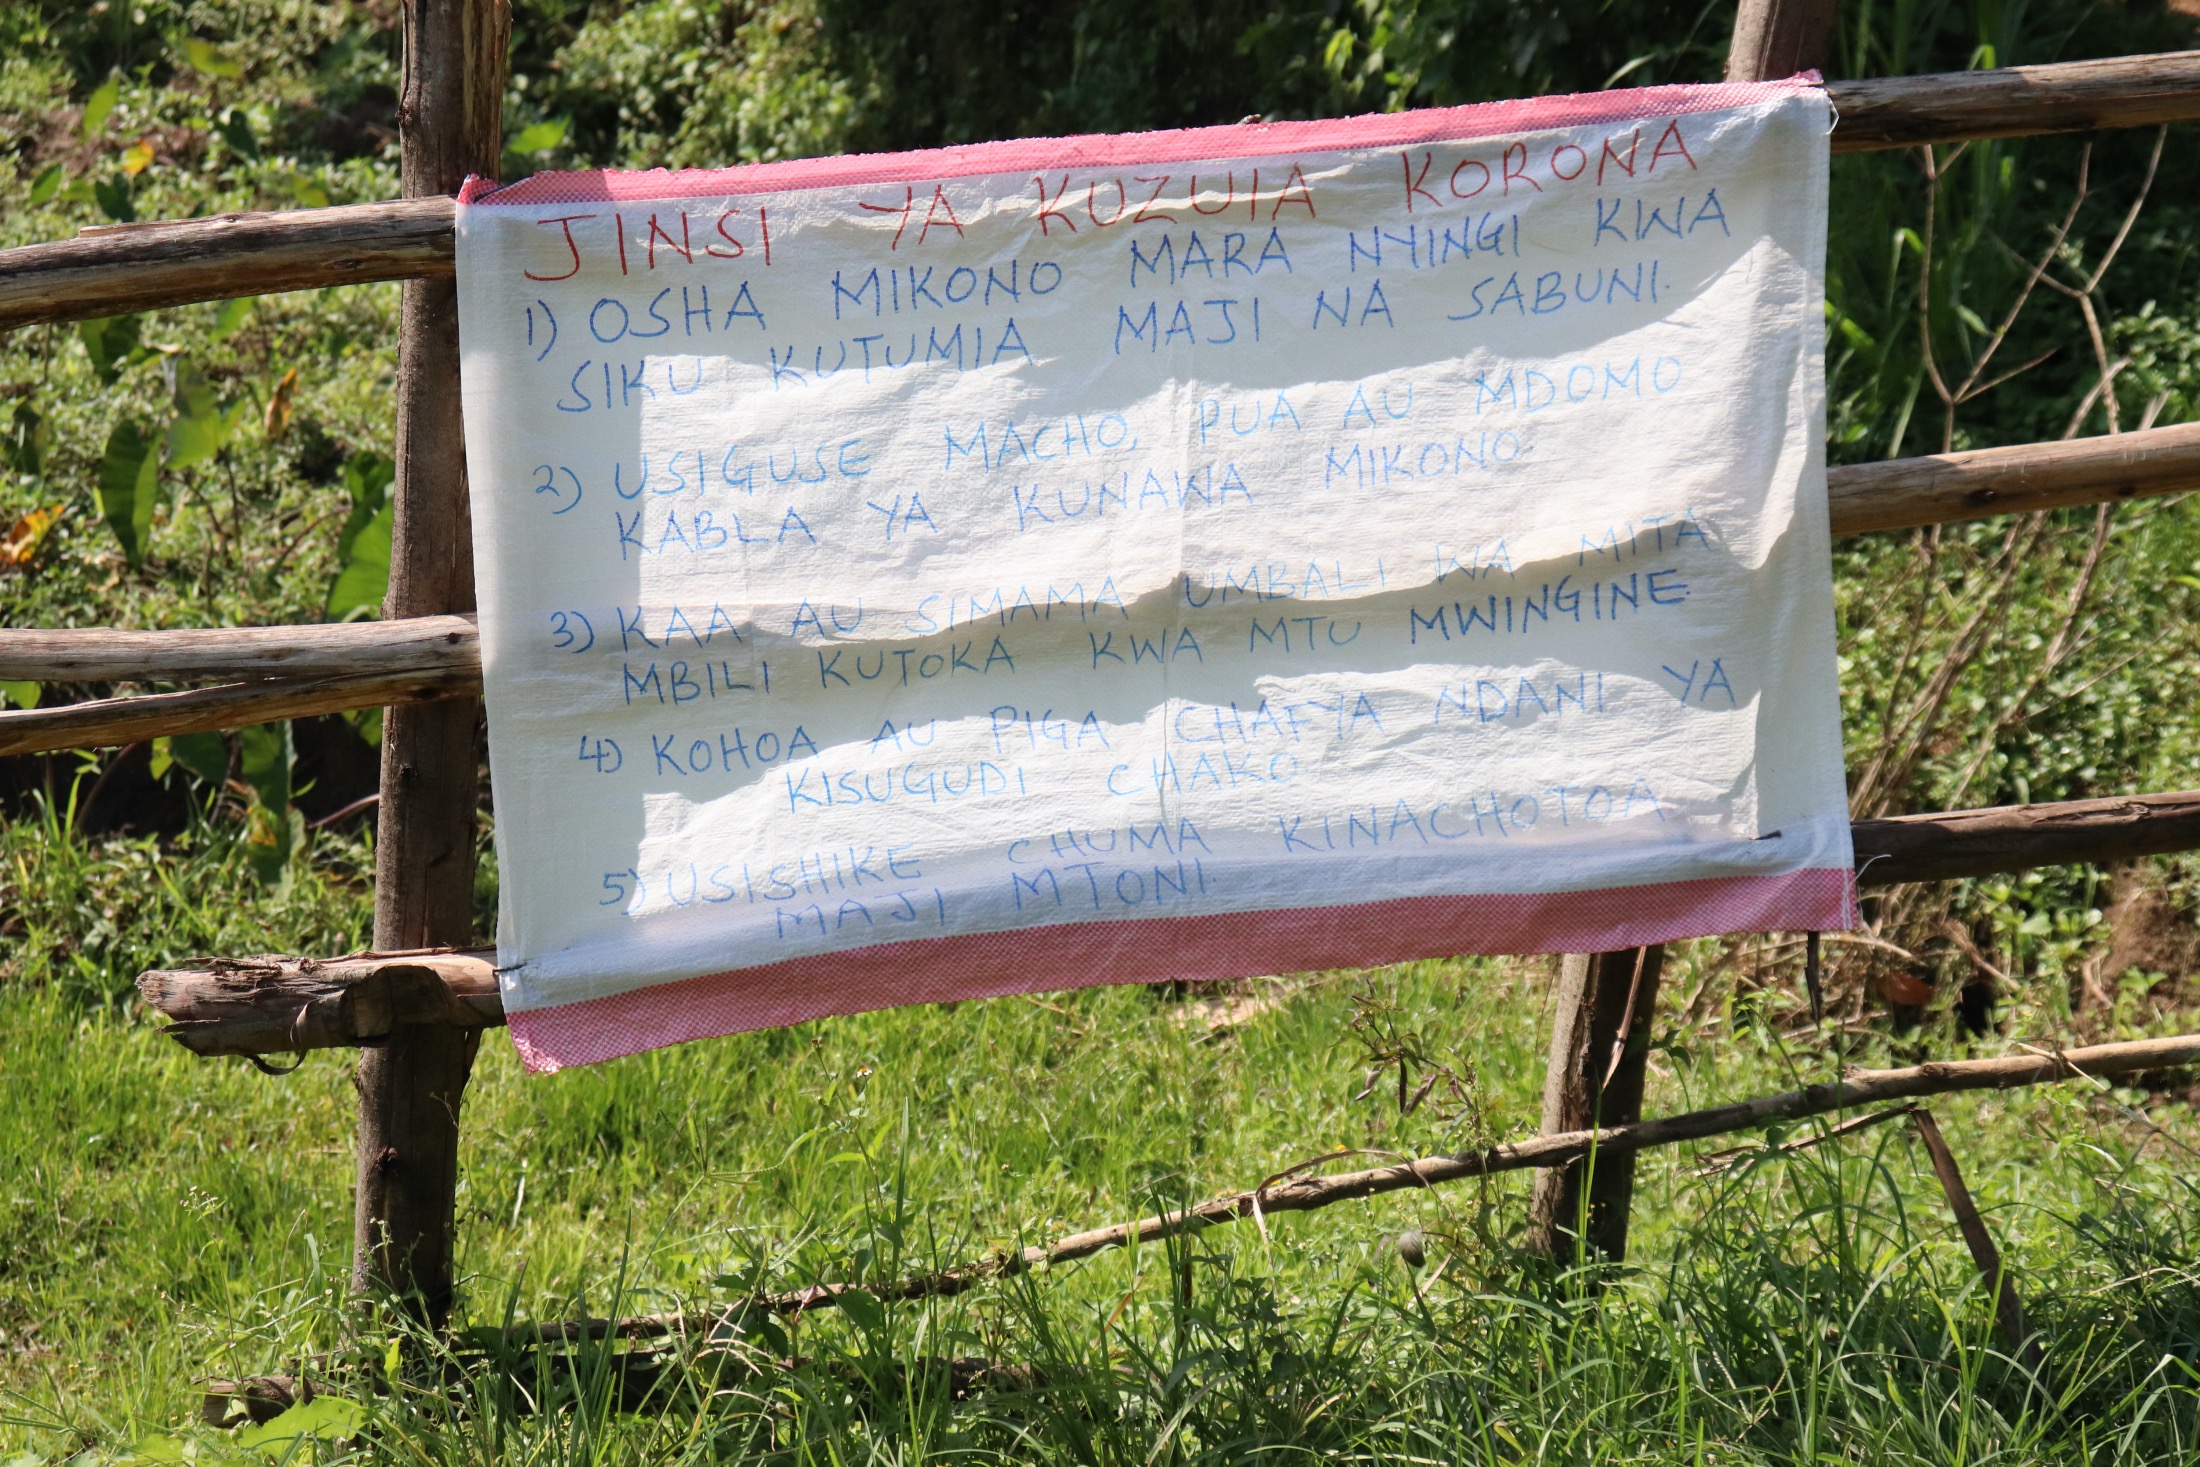 JINSI YA KUZUIA KORONA
1) OSHA MIKONO MARA NYINGI KWA
SIKU KUTUMIA MAJI NA SABUNI.
2) USIGUSE MACHO, PUA AU MDOMO
KABLA YA KUNAWA MIKONO.
3) KAA AU SIMAMA UMBALI WA MITA
MBILI KUTOKA KWA MTU MWINGINE.
4) KOHOA AU PIGA CHAFYA NDANI YA
KISUGUDI CHAKO
5) USISHIKE CHUMA KINACHOTOA
MAJI MTONI.